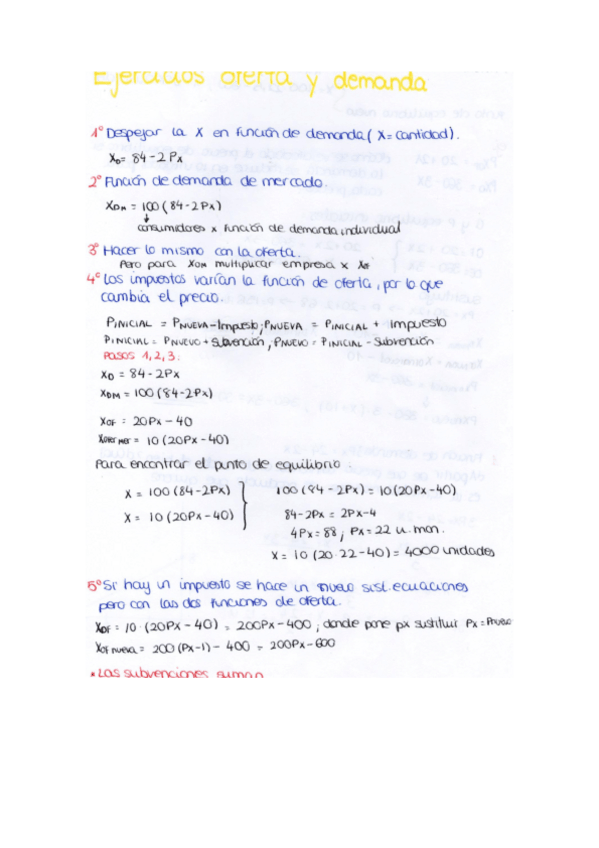 Ejercicios oferta y demanda
1º Despejar la X en función de demanda (X = cantidad).
XD = 84 - 2Px
2º Función de demanda de mercado.
XDM = 100 (84 - 2Px)
consumidores x función de demanda individual
3º Hacer lo mismo con la oferta.
Pero para XOM multiplicar empresa x
4º Los impuestos varían la función de oferta, por lo que
cambia el precio.
PINICIAL = PNUEVA - Impuesto; PNUEVA = PINICIAL + Impuesto
PINICIAL = PNUEVO + Subvención, PNUEVO = PINICIAL - Subvención
PASOS 1, 2, 3:
XD = 84 - 2Px
XDM = 100 (84 - 2Px)
XOF = 20Px - 40
= 10 (20Px - 40)
Para encontrar el punto de equilibrio:
X = 100 (84 - 2Px) } 100 (84 - 2Px) = 10 (20Px - 40)
X = 10 (20Px - 40) 84 - 2Px = 2Px - 4
4Px = 88; Px = 22 u. mon.
X = 10 (20·22 - 40) = 4000 unidades
5º Si hay un impuesto se hace un nuevo sist. ecuaciones
pero con las dos funciones de oferta.
XOF = 10 · (20Px - 40) = 200Px - 400; donde pone px sustituir Px =
XOF nueva = 200 (Px - 1) - 400 = 200Px - 600
* Las subvenciones suman